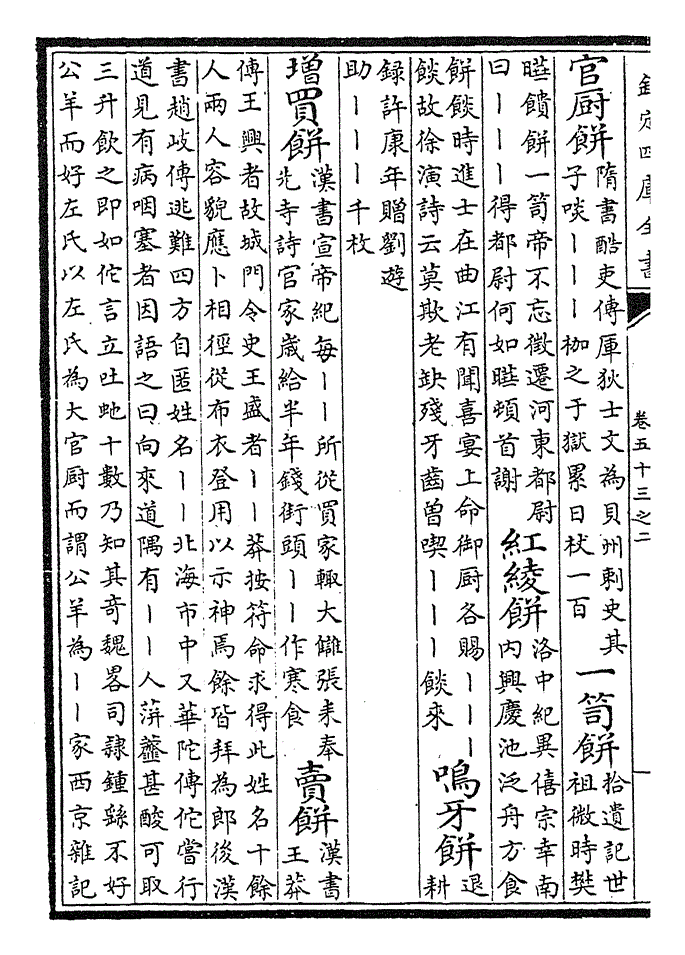 欽定四庫全書
卷五十三之二
一
官厨餅
隋書酷吏傳庫狄士文為貝州刺史其
子啖丨丨丨枷之于獄累日杖一百
一笥餅
拾遺記世
祖微時樊
曄饋餅一笥帝不忘徵遷河東都尉
曰丨丨丨得都尉何如曄頓首謝
紅綾餅
洛中紀異僖宗幸南
内興慶池泛舟方食
餅餤時進士在曲江有聞喜宴上命御厨各賜丨丨丨
餤故徐演詩云莫欺老缺殘牙齒曾喫丨丨丨餤來
鳴牙餅
退
耕
録許康年贈劉遊
助丨丨丨千枚
增買餅
漢書宣帝紀每丨丨所從買家輒大讎張耒奉
先寺詩官家歲給半年錢街頭丨丨作寒食
賣餅
漢書
王莽
傳王興者故城門令史王盛者丨丨莽按符命求得此姓名十餘
人兩人容貌應卜相徑從布衣登用以示神焉餘皆拜為郎後漢
書趙岐傳逃難四方自匿姓名丨丨北海市中又華陀傳佗嘗行
道見有病咽塞者因語之曰向來道隅有丨丨人蓱虀甚酸可取
三升飲之即如佗言立吐虵十數乃知其奇魏畧司隸鍾繇不好
公羊而好左氏以左氏為大官厨而謂公羊為丨丨家西京雜記